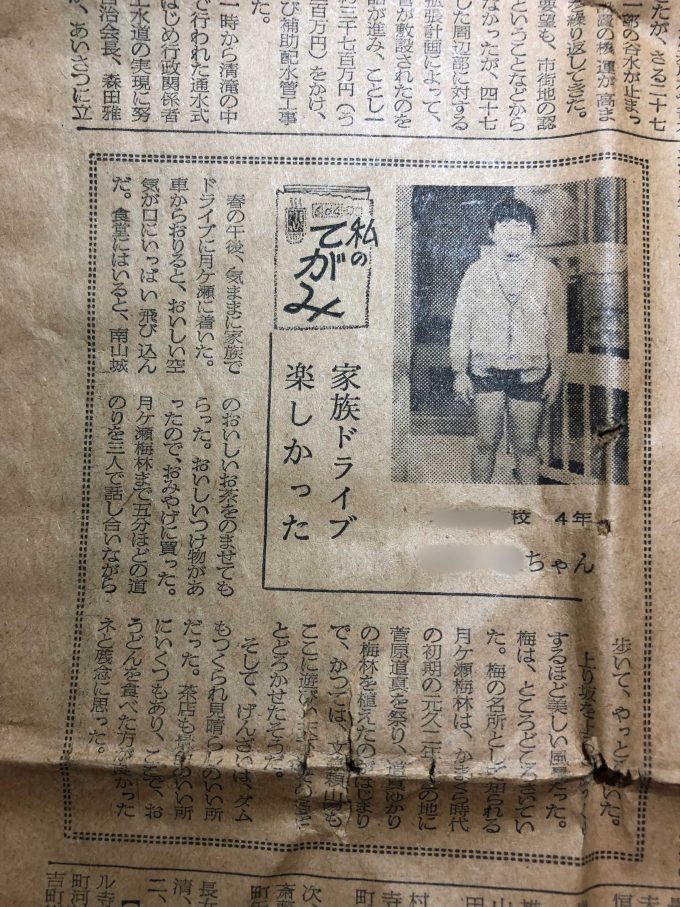 部の谷水が止まっ
を繰り返してきた。
要望も、市街地の認
ということなどから
なかったが、四十七
した周辺部に対する
拡張計画によって、
管が敷設されたのを
話が進み、ことし一
三七百万円(う
百万円)をかけ、
び補助配水管工事
た。
一時から清滝の中
で行われた通水式
はじめ行政関係者
上水道の実現に努
治会長、森田雅
、あいさつに立
私の
てがみ
家族ドライブ
楽しかった
校 4年
ちゃん
春の午後、気ままに家族で
ドライブに月ケ瀬に着いた。
車からおりると、おいしい空
気が口にいっぱい飛び込ん
だ。食堂にはいると、南山城
のおいしいお茶をのませても
らった。おいしいつけ物があ
ったので、おみやげに買った。
月ケ瀬梅林まで五分ほどの道
のりを三人で話し合いながら
歩いて、やっと
いた。
上り坂を
するほど美しい風景だった。
梅は、ところどころさいてい
た。梅の名所として知られる
月ケ瀬梅林は、かまくら時代
の初期の元久二年
の地に
菅原道真を祭り、道真ゆかり
の梅林を植えたのがはじまり
で、かつては、文
頼山
も
ここに遊び
とどろかせたそうだ。
そして、げんざいは、ダム
もつくられ見晴らしのいい所
だった。茶店も
いい所
にいくつもあり、ここで、お
うどんを食べた方が
かった
ネと残念に思った。